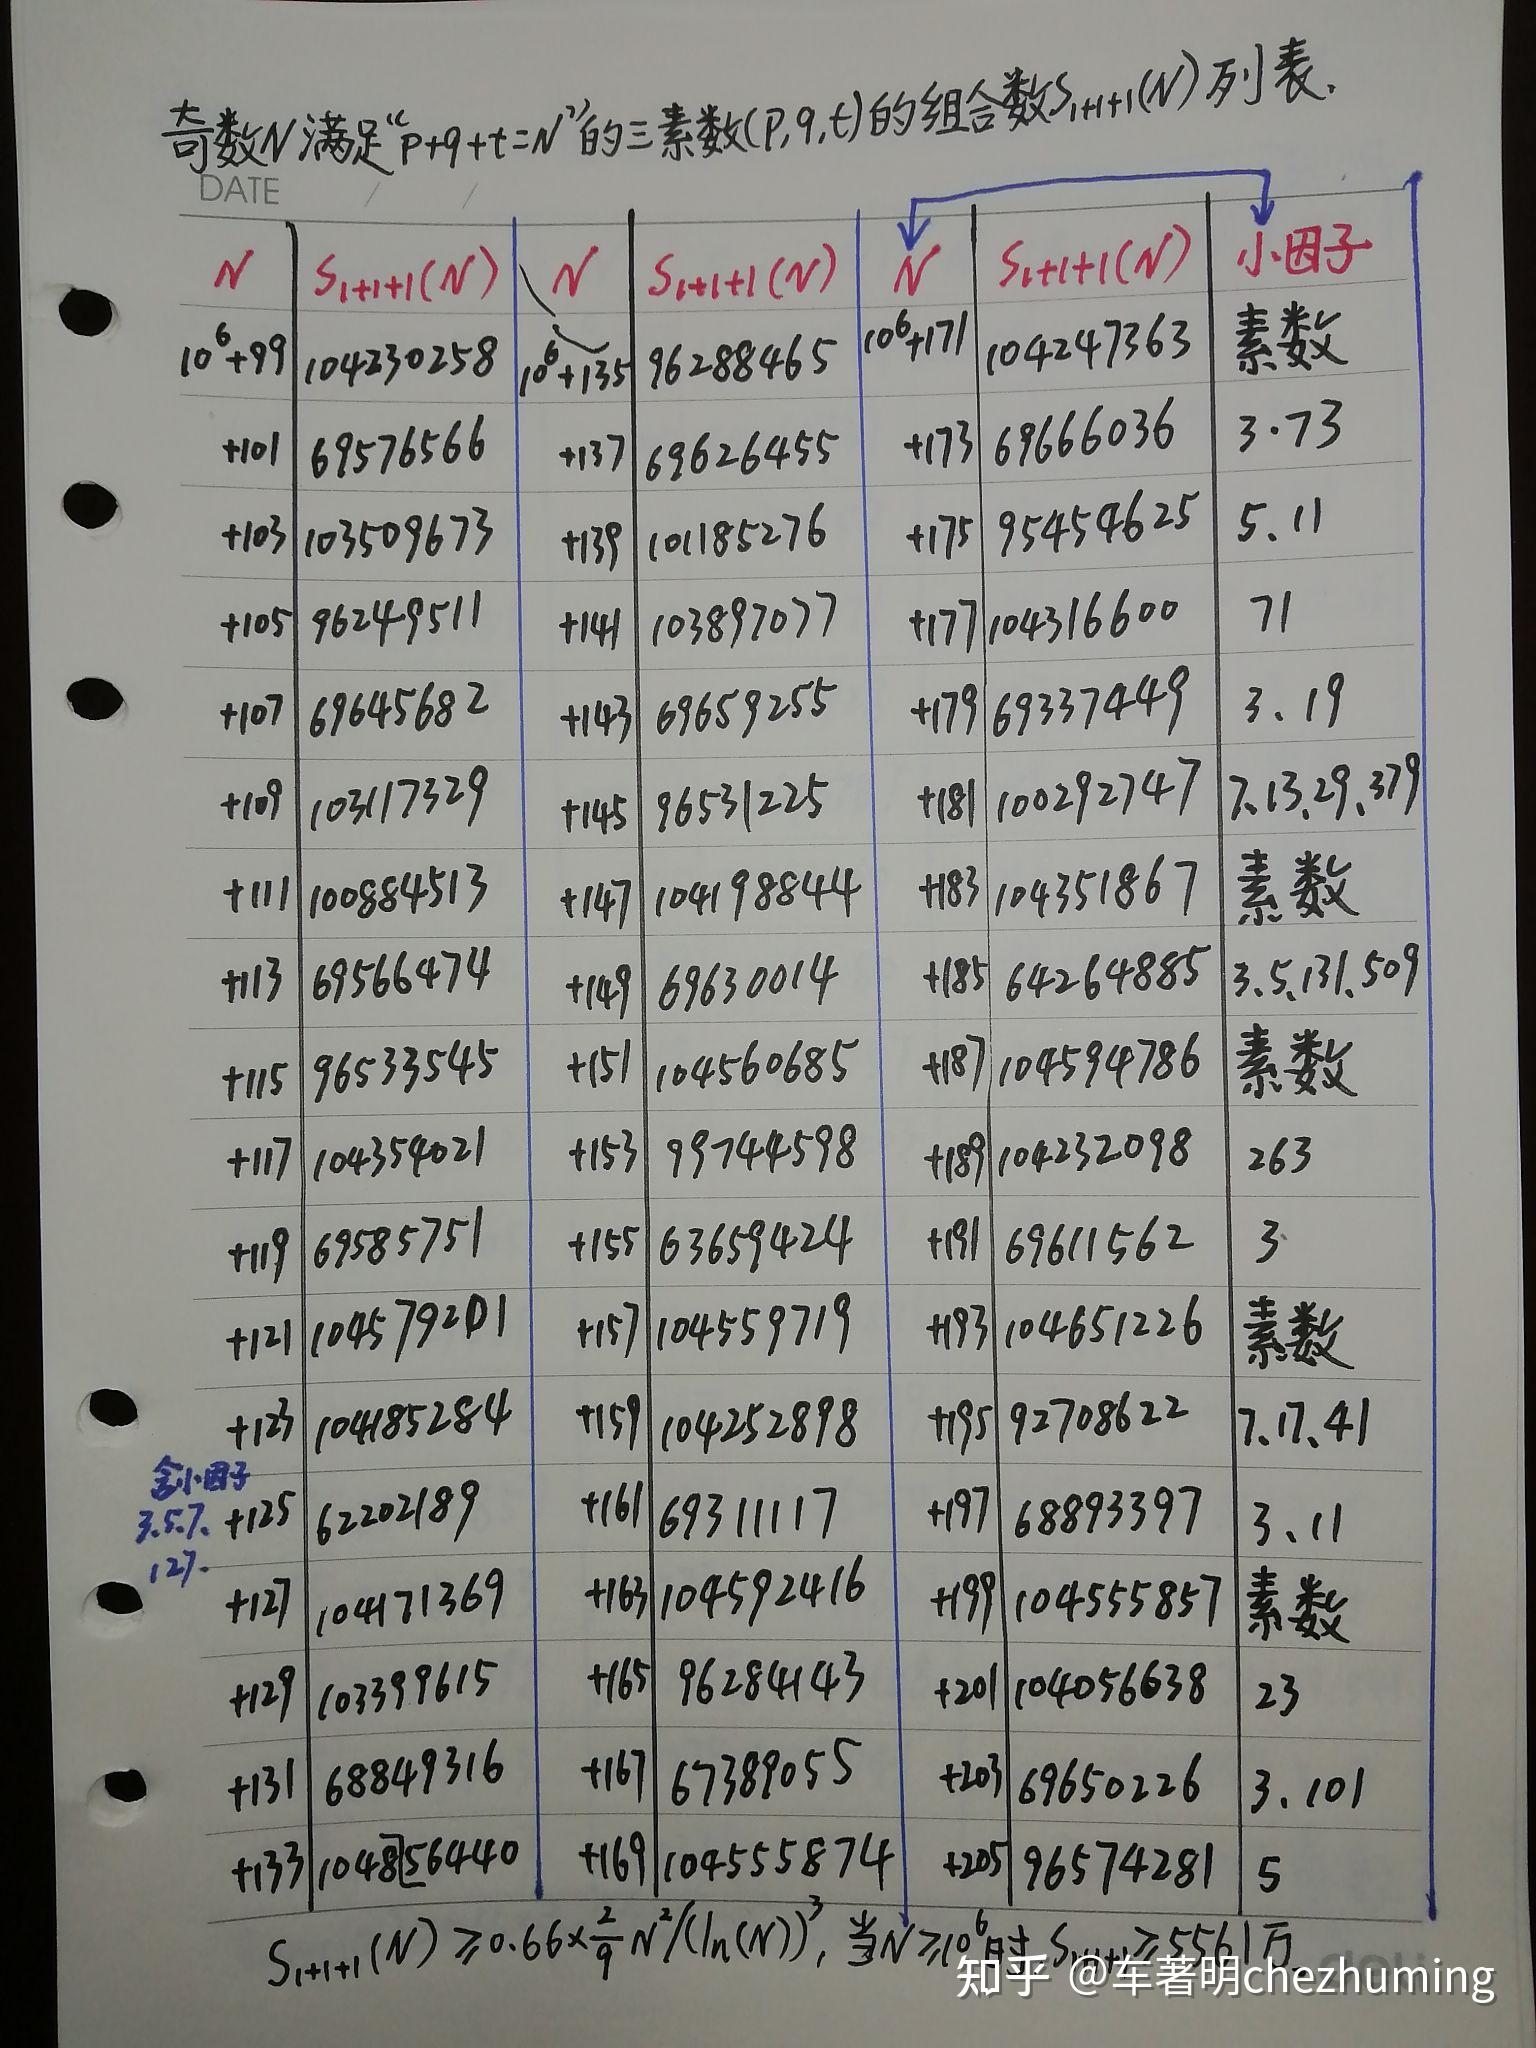 奇数N满足“p+q+t=N”的三素数(p,q,t)的组合数S₁₊₁₊₁(N)列表.
DATE / /
N S₁₊₁₊₁(N) N S₁₊₁₊₁(N) N S₁₊₁₊₁(N) 小因子
10⁶+99 104230258 10⁶+135 96288465 10⁶+171 104247363 素数
+101 69576566 +137 69626455 +173 69666036 3·73
+103 103509673 +139 101185276 +175 95454625 5.11
+105 96249511 +141 103897077 +177 104316600 71
+107 69645682 +143 69659255 +179 69337449 3.19
+109 103117329 +145 96531225 +181 100292747 7.13.29.379
+111 100884513 +147 104198844 +183 104351867 素数
+113 69566474 +149 69630014 +185 64264885 3.5.131.509
+115 96533545 +151 104560685 +187 104594786 素数
+117 104354021 +153 99744598 +189 104232098 263
+119 69585751 +155 63659424 +191 69611562 3
+121 104579201 +157 104559719 +193 104651226 素数
+123 104185284 +159 104252898 +195 92708622 7.17.41
含小因子
3.5.7.
127.
+125 62202189 +161 69311117 +197 68893397 3.11
+127 104171369 +163 104592416 +199 104555857 素数
+129 103399615 +165 96284143 +201 104056638 23
+131 68849316 +167 67389055 +203 69650226 3.101
+133 104856440 +169 104555874 +205 96574281 5
S₁₊₁₊₁(N)≥0.66×2/9 N²/(ln(N))³, 当N≥10⁶时, S₁₊₁₊₁≥5561万.
知乎 @车著明chezhuming